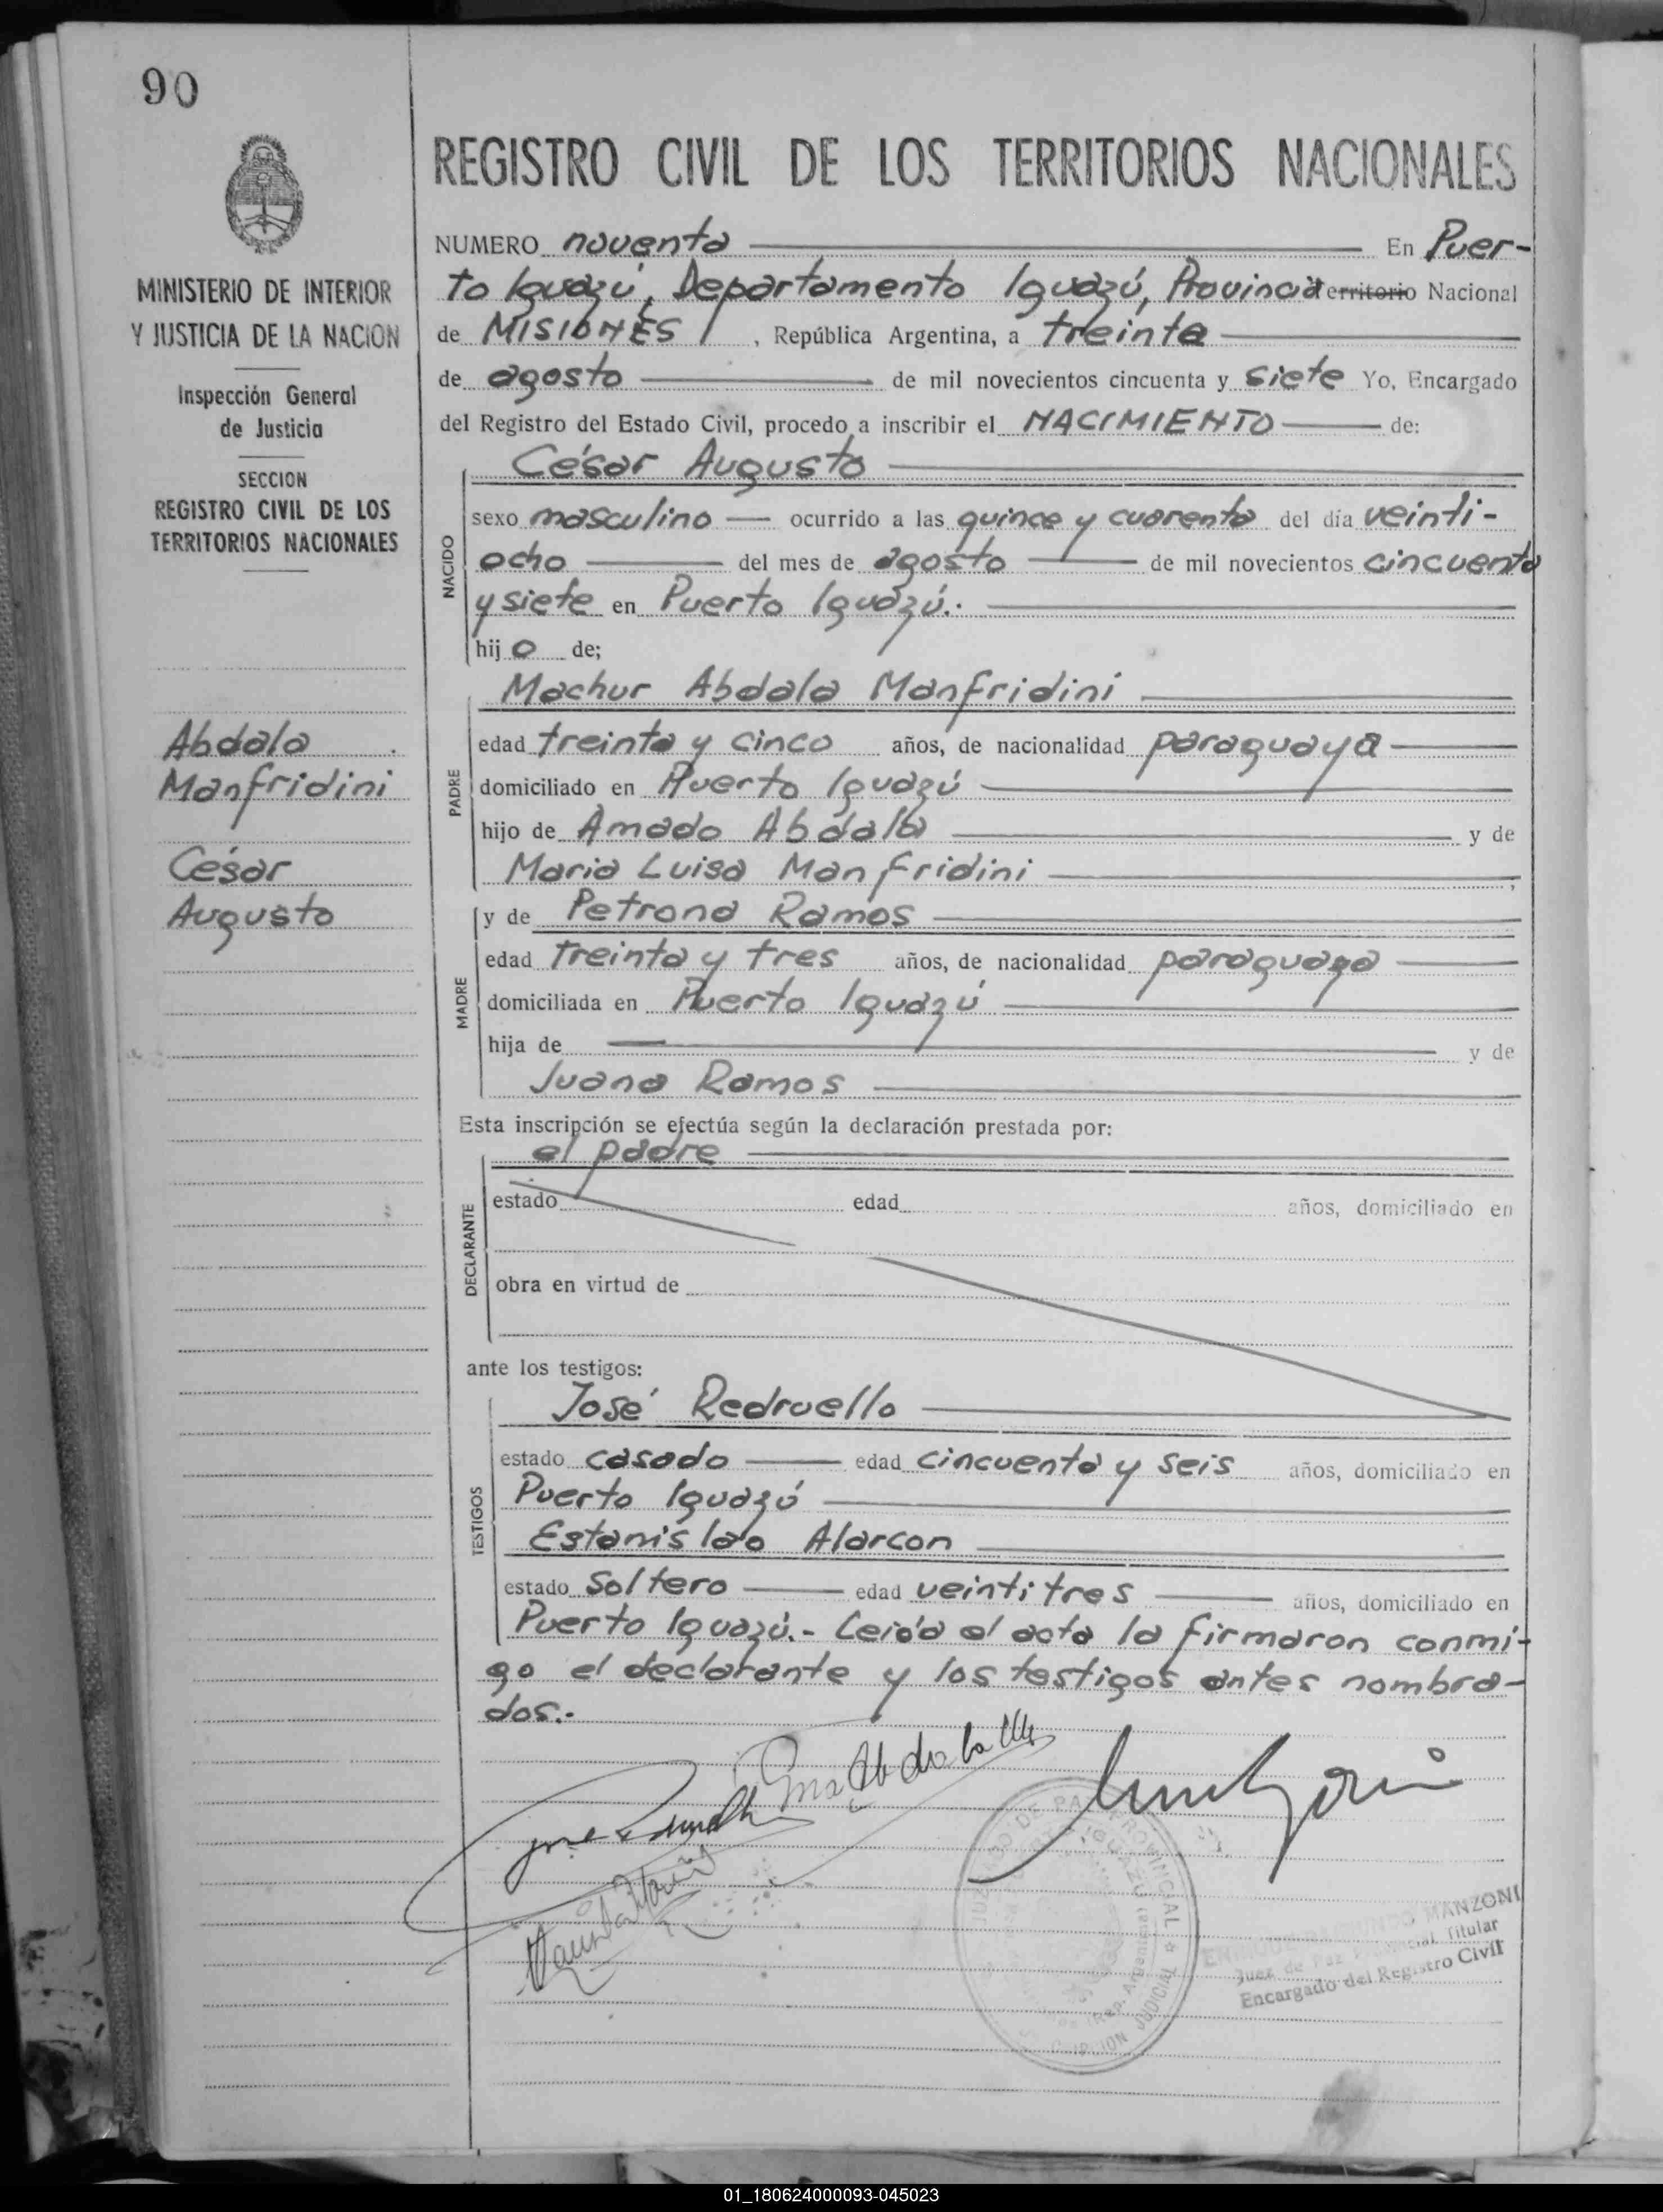 90
REGISTRO CIVIL DE LOS TERRITORIOS NACIONALES
MINISTERIO DE INTERIOR
Y JUSTICIA DE LA NACION
Inspección General
de Justicia
SECCION
REGISTRO CIVIL DE LOS
TERRITORIOS NACIONALES
Abdala
Manfridini
César
Augusto
NUMERO noventa En Puer-
to Iguazú, Departamento Iguazú, Provincia Territorio Nacional
de MISIONES, República Argentina, a treinta
de agosto de mil novecientos cincuenta y siete Yo, Encargado
del Registro del Estado Civil, procedo a inscribir el NACIMIENTO de:
César Augusto
NACIDO
sexo masculino ocurrido a las quince y cuarenta del día veinti-
ocho del mes de agosto de mil novecientos cincuenta
y siete en Puerto Iguazú.
hijo de;
Machur Abdala Manfridini
PADRE
edad treinta y cinco años, de nacionalidad paraguaya
domiciliado en Puerto Iguazú
hijo de Amado Abdala y de
Maria Luisa Manfridini
y de Petrona Ramos
MADRE
edad treinta y tres años, de nacionalidad paraguaya
domiciliada en Puerto Iguazú
hija de y de
Juana Ramos
Esta inscripción se efectúa según la declaración prestada por:
el padre
DECLARANTE
estado edad años, domiciliado en
obra en virtud de
ante los testigos:
José Redruello
TESTIGOS
estado casado edad cincuenta y seis años, domiciliado en
Puerto Iguazú
Estanislao Alarcon
estado Soltero edad veintitres años, domiciliado en
Puerto Iguazú.- Leida el acta la firmaron conmi-
go el declarante y los testigos antes nombra-
dos.-
JUZGADO DE PAZ PROVINCIAL
IGUAZU
MANZONI
Juez de Paz Provincial Titular
Encargado del Registro Civil
01_180624000093-045023